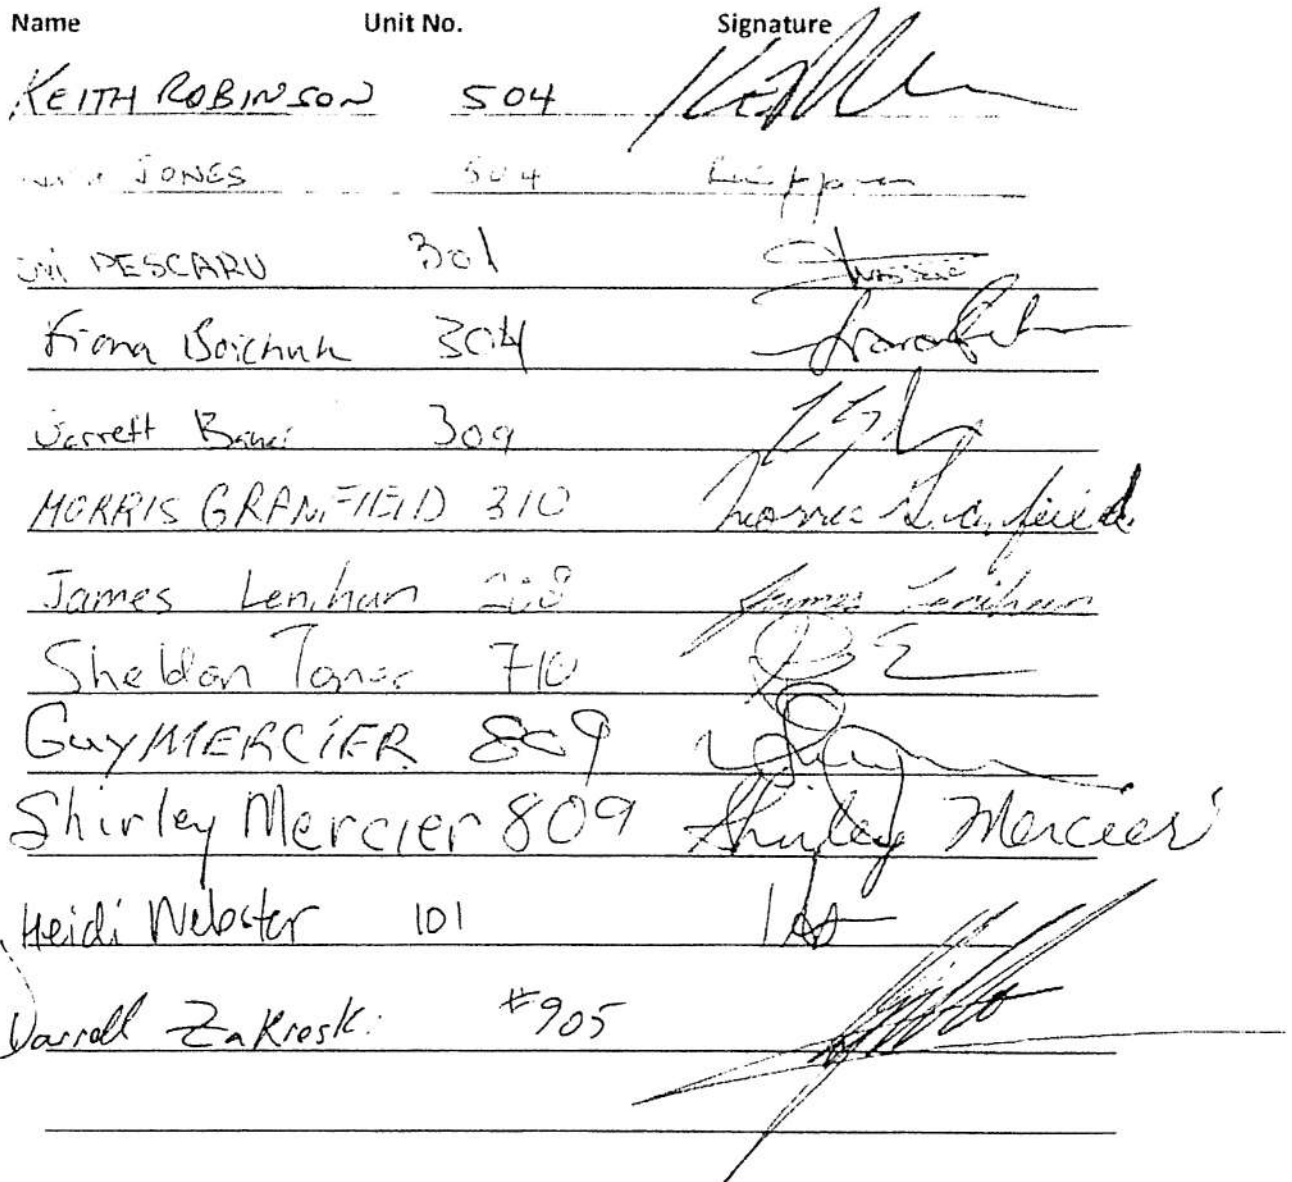 Name Unit No. Signature
KEITH ROBINSON 504
JONES 504
PESCARU 301
Fiona Boichuk 304
Jarrett 309
MORRIS GRANFIELD 310 Morris Granfield
James Lenihan 208 James Lenihan
Sheldon 710
GUY MERCIER 809
Shirley Mercier 809 Shirley Mercier
Heidi Webster 101
Darrell Zakreski #905